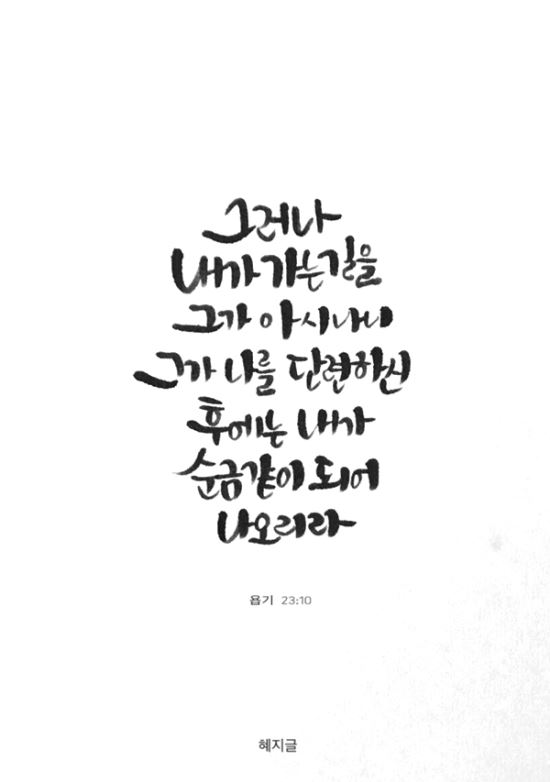 그러나
내가 가는 길을
그가 아시나니
그가 나를 단련하신
후에는 내가
순금같이 되어
나오리라
욥기 23:10
혜지글